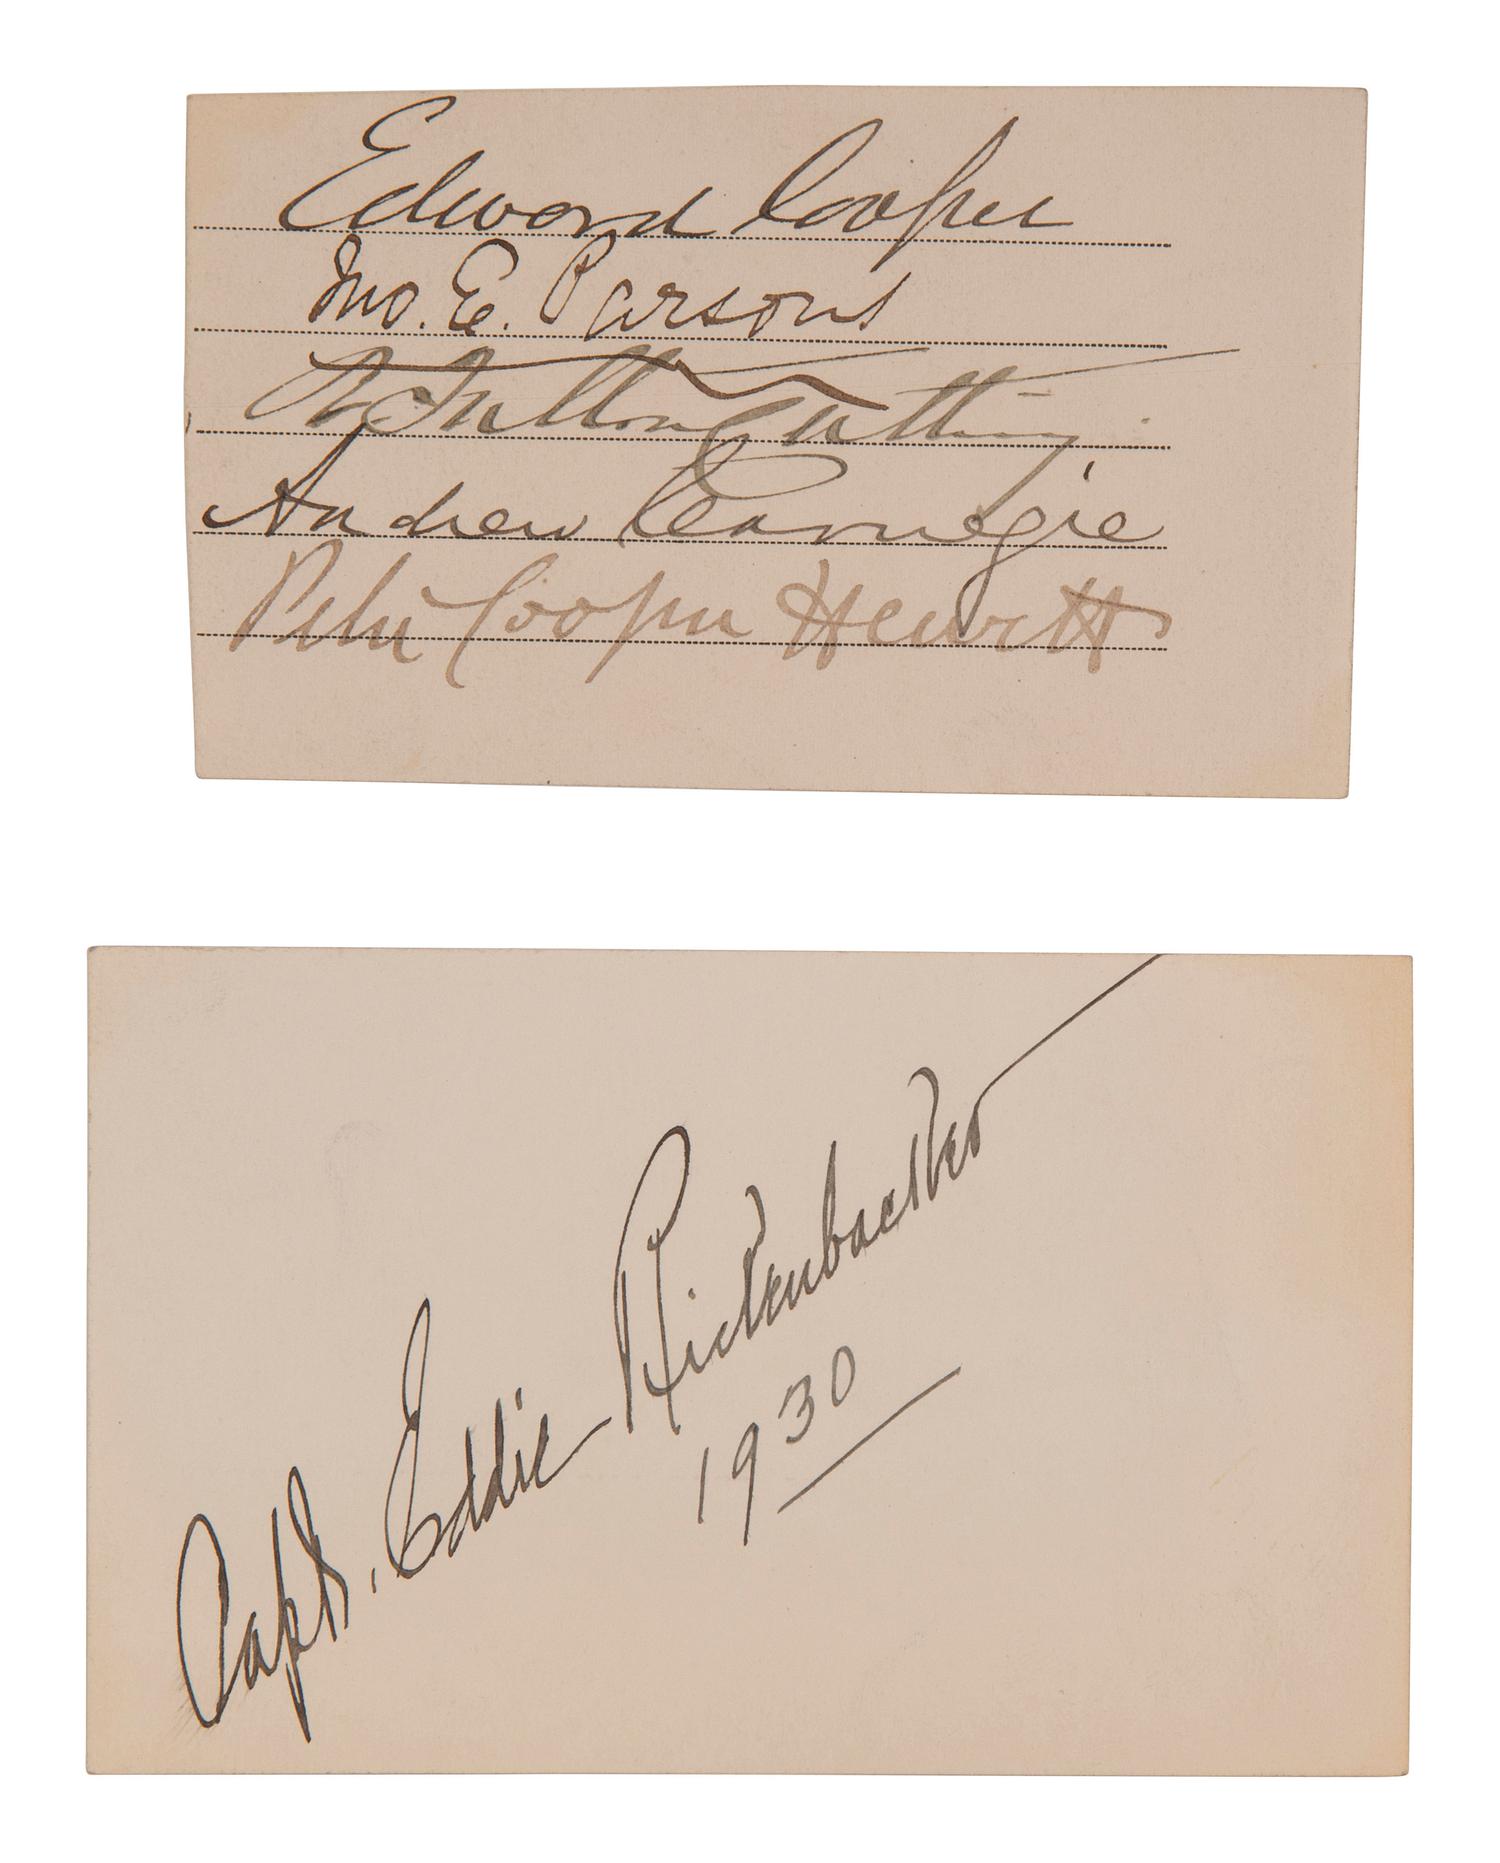 Edward Cooper
Jno. E. Parsons
R Fulton Cutting
Andrew Carnegie
Peter Cooper Hewitt
Capt. Eddie Rickenbacker
1930